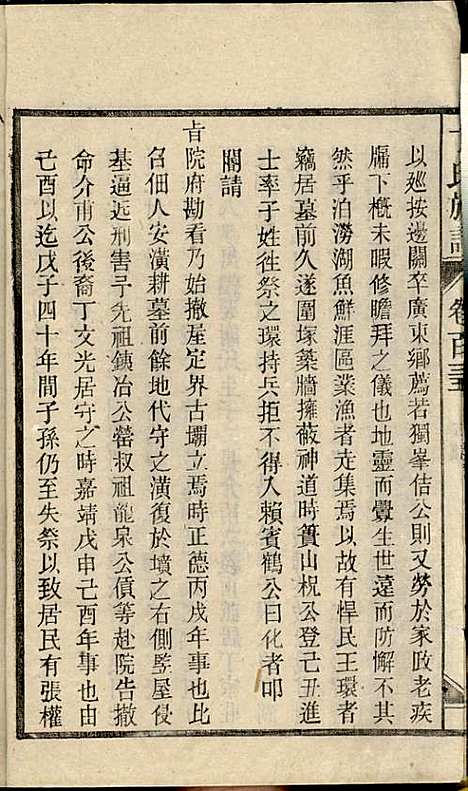 以廵按邊關卒廣東鄉薦若獨峯佶公則又勞於家政老疾
牖下槪未暇修瞻拜之儀也地靈而釁生世遠而防懈不其
然乎泊澇湖魚鮮涯區業漁者走集焉以故有悍民王環者
竊居墓前久遂圍塚築牆擁蔽神道時簣山柷公登己丑進
士率子姓徃祭之環持兵拒不得入賴賓鶴公曰化者叩
閽請
㫖院府勘看乃始撤屋定界古壩立焉時正德丙戌年事也比
召佃人安潢耕墓前餘地代守之潢復於墳之右側竪屋侵
基逼近刑害予先祖銕冶公罃叔祖龍泉公債等赴院告撤
命介甫公後裔丁文光居守之時嘉靖戊申己酉年事也由
己酉以迄戊子四十年間子孫仍至失祭以致居民有張權
氏族譜
卷百三